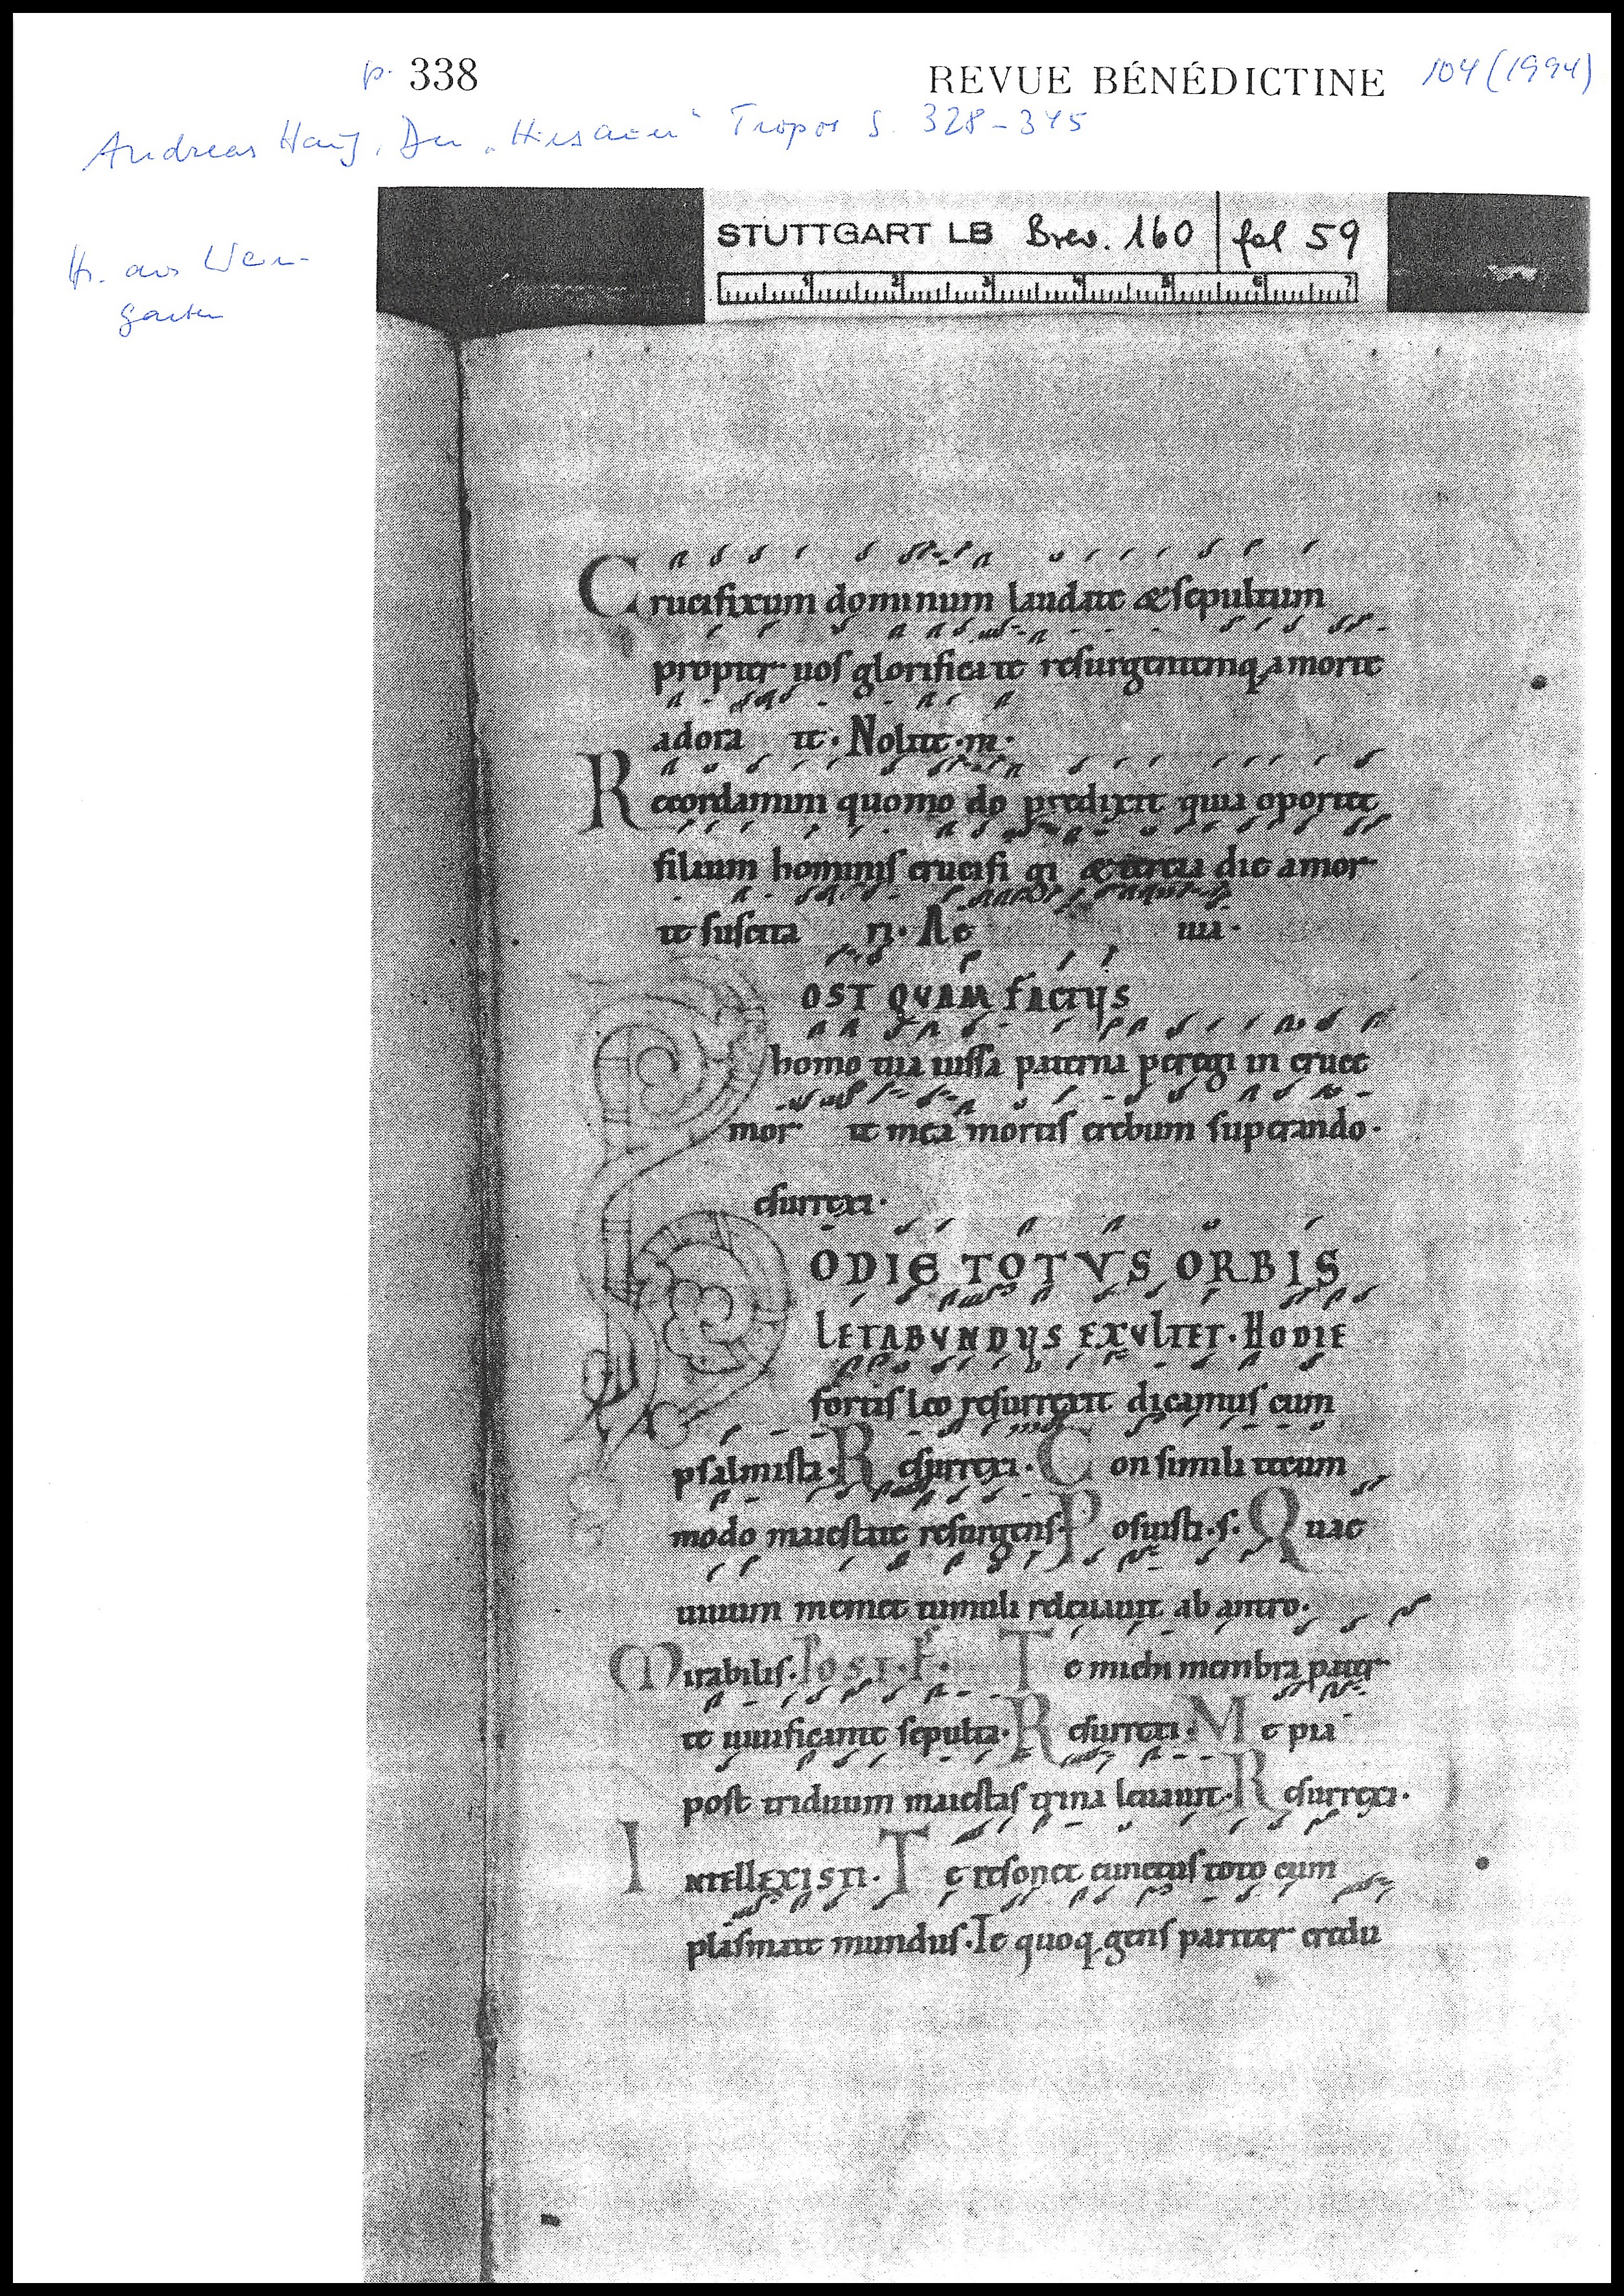 p. 338 REVUE BÉNÉDICTINE 104 (1994)
Andreas Haug, Der „Hirsauer“ Tropus S. 328-345
Hs. aus Wein-
garten
STUTTGART LB Brev. 160 fol 59
1 2 3 4 5 6 7
Crucifixum dominum laudate & sepultum
propter uos glorificate resurgentemq; a morte
adora te. Nolite.m.
Recordamini quomo do predixit quia oportet
filium hominis crucifi gi & tercia die a mor
te suscita ri. Ae uia.
POST QVAM FACTVS
homo tua iussa paterna peregi in cruce
mor te mea mortis erebum superando.
Resurrexi.
HODIE TOTVS ORBIS
LETABVNDVS EXVLTET. HODIE
fortis leo resurrexit dicamus cum
psalmista. Resurrexi. Consimili tecum
modo maiestate resurgens. Posuisti.s. Quae
uiuum memet tumuli releuauit ab antro.
Mirabilis. Te michi membra pater
te uiuificante sepulta. Resurrexi. Me pia
post triduum maiestas trina leuauit. Resurrexi.
INTELLEXISTI. Te resonet cunctus toto cum
plasmate mundus. Te quoq; gens pariter credu